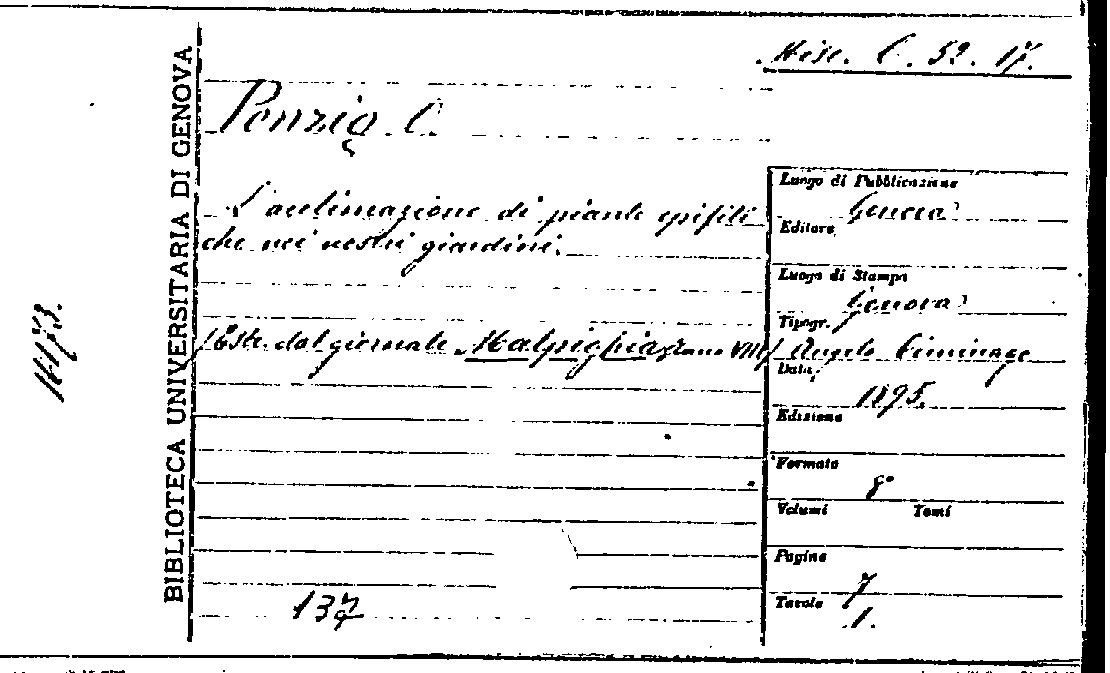 Misc. C. 52. 17.
BIBLIOTECA UNIVERSITARIA DI GENOVA
Penzig O.
L'acclimazione di piante epifiti
che nei nostri giardini.
(Estr. dal giornale Malpighia, anno VIII)
Luogo di Pubblicazione
Genova
Editore
Luogo di Stampa
Genova
Tipogr.
Angelo Ciminago
Data,
1895.
Edizione
Formato
8°
Volumi Tomi
Pagine
7
Tavole
1.